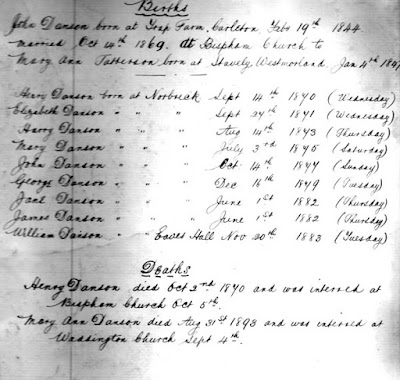 Births
John Danson born at Trap Farm, Carleton, Febr 19th 1844
married Oct 14th 1869. At Bispham Church to
Mary Ann Patterson born at Stavely, Westmorland, Jan 4th 184
Henry Danson born at Norbreck Sept 14th 1870 (Wednesday)
Elizabeth Danson " " " Sept 27th 1871 (Wednesday)
Harry Danson " " " Aug 14th 1873 (Thursday)
Mary Danson " " " July 3rd 1875 (Saturday)
John Danson " " " Oct 14th 1877 (Sunday)
George Danson " " " Dec 16th 1879 (Tuesday)
Jael Danson " " " June 1st 1882 (Thursday)
James Danson " " " June 1st 1882 (Thursday)
William Danson " " Eaves Hall Nov 20th 1883 (Tuesday)
Deaths
Henry Danson died Oct 2nd 1870 and was interred at
Bispham Church Oct 5th.
Mary Ann Danson died Aug 31st 1893 and was interred at
Waddington Church Sept 4th.